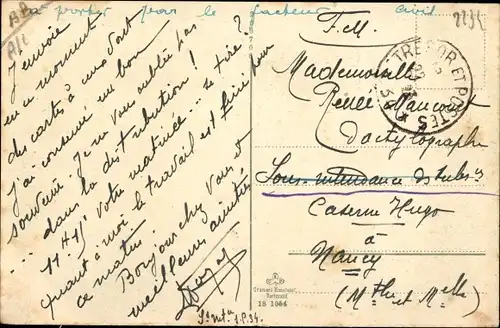 a porter par le facteur
civil
2232
J'envoie
en ce moment
des cartes à ceux dont
j'ai conservé un bon
souvenir. Je ne vous oublie pas
dans la distribution !
Votre matrice se tire ?
quant à moi, le travail est fini pour
ce matin.
Bonjour chez vous et
meilleures amitiés
F.M.
Mademoiselle
Renée Maucourt
Dactylographe
Sous-intendance des subs
Caserne Hugo
à
Nancy
(Mthe et Melle)
TRESOR ET POSTES
18 1064